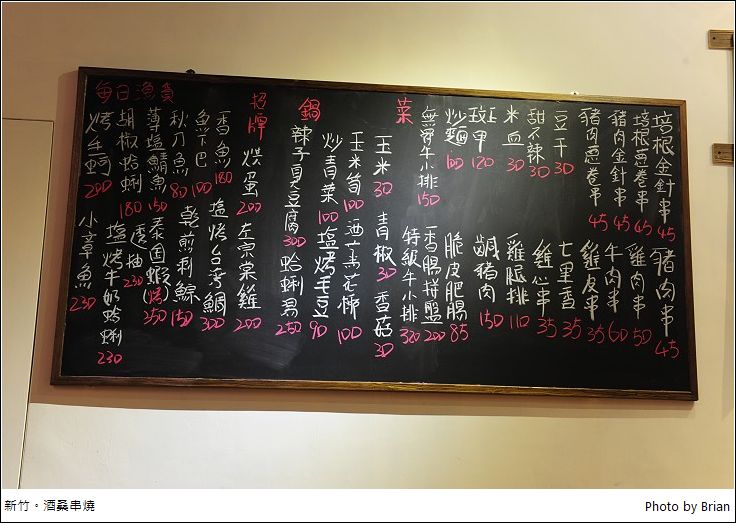 培根金針串 45 豬肉串 45
培根蔥卷串 45 雞肉串 50
豬肉金針串 45 牛肉串 60
豬肉蔥卷串 45 雞皮串 35
豆干 30 七里香 35
甜不辣 30 雞心串 35
米血 30 雞腿排 110
斑甲 120 鹹豬肉 150
炒麵 100 脆皮肥腸 85
無骨牛小排 150 香腸拼盤 200
菜 特級牛小排 320
玉米 30 青椒 30 香菇 30
玉米筍 100 洒店花椰 100
炒青菜 100 塩烤毛豆 90
鍋 辣子臭豆腐 300 蛤蜊 250
招牌 烘蛋 200 左宗棠雞 200
香魚 180 塩烤台湾鯛 300
魚下巴 100 乾煎剌鯨 150
秋刀魚 80 泰国蝦(烤) 350
薄塩鯖魚 150 透抽 230
每日漁貨 胡椒蛤蜊 180 塩烤牛奶蛤蜊 230
烤牛蚵 200 小章魚 230
新竹。酒鱻串燒
Photo by Brian